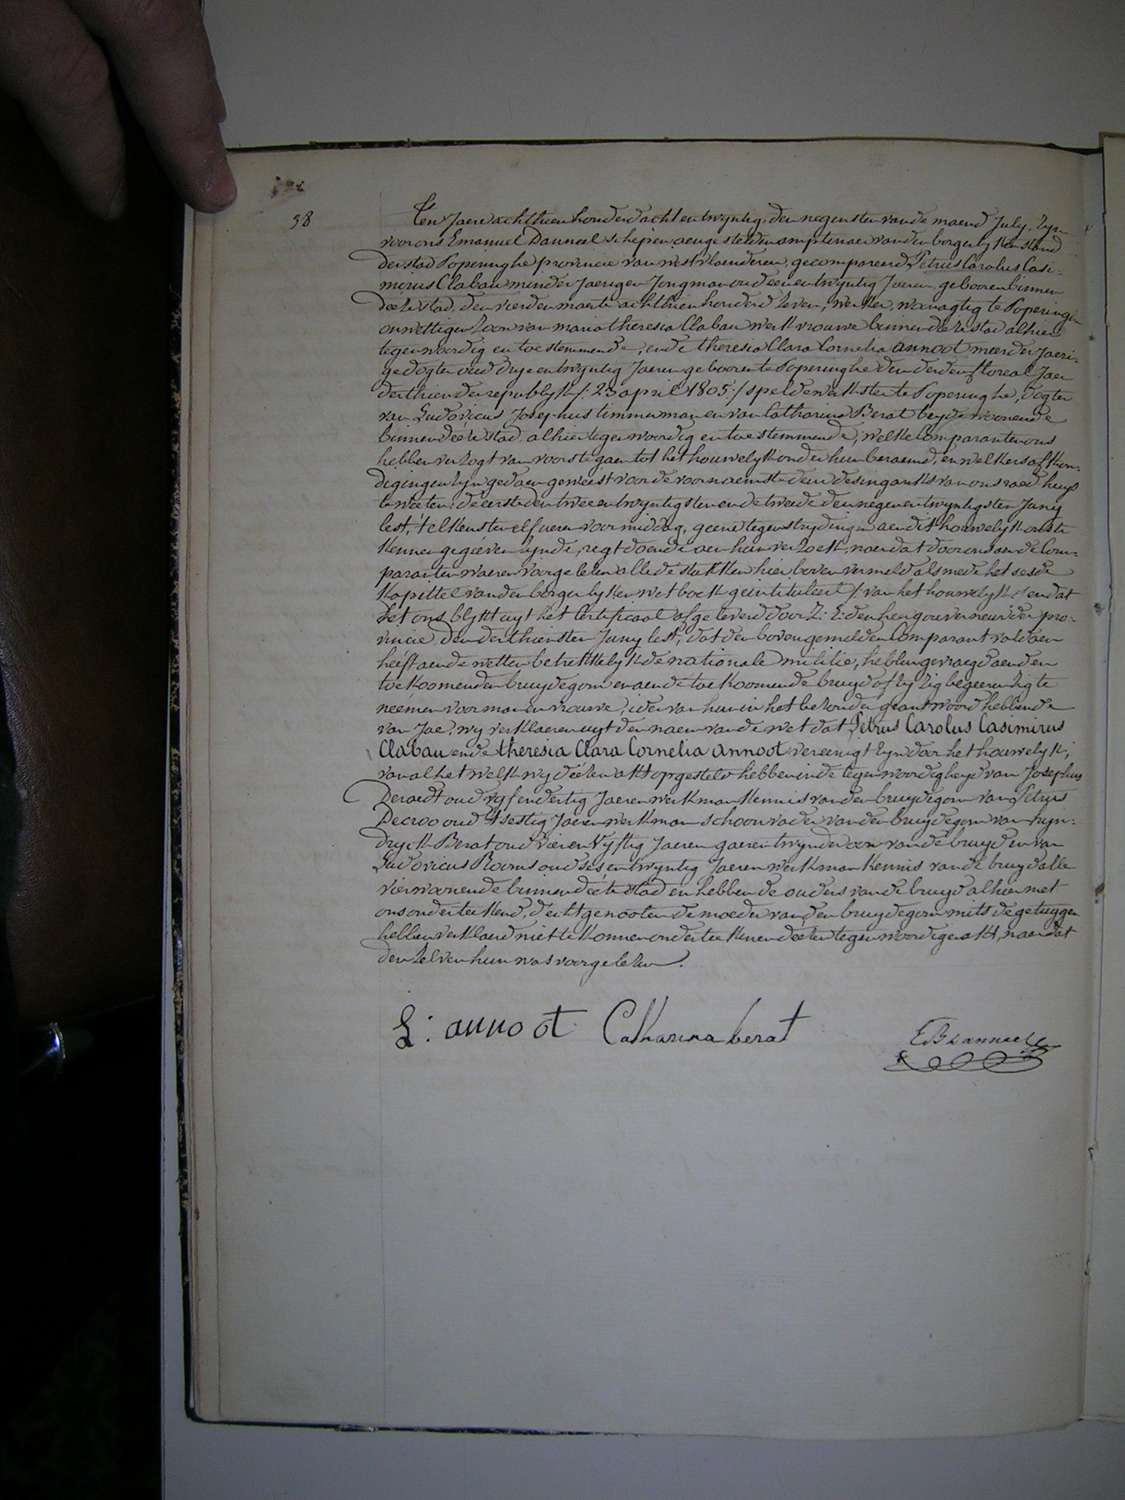 38
Ten Jaere achthien honderd acht en twyntig, den negensten van de maend July, Zyn
voor ons Emanuel Danneel schepen aengestelden amptenaer van den borgerlyken stand
der stad Poperinghe provencie van westvlaenderen, gecompareerd Petrus Carolus Casi-
mirus Clabau minder jaerigen Jongman oud een en twyntig Jaeren, gebooren binnen
deéze stad, den vierden maerte achthien honderd zeven, werker, woonagtig te Poperinghe
onwettigen Zoon van maria theresia Clabau werkvrouwe binnen deéze stad alhier
tegenwoordig en toestemmende, ende theresia Clara Cornelia annoot meerder Jaeri-
ge dogter oud dry en twyntig Jaeren geboore te Poperinghe den derden floreal Jaer
derthien der republyk / 23 april 1805 / speldewerkster te Poperinghe, dogter
van Ludovicus Josephus timmerman en van Catharina Berat beyde woonende
binnen deéze stad alhier tegenwoordig en toestemmende, welke Comparanten ons
hebben verzogt van voorts te gaen tot het houwelyk onder hun beraemd, en welkers afkon-
digingen zyn gedaen geweest voor de voornaemste deur des ingank van ons raed huys
te weten: de eerste den twee en twyntigsten ende tweede den negen en twyntigsten Juny
lest, t'elkens ten elf ueren voor middag, geene tegenstrydingen aen dit houwelyk ons te
kennen gegéeven zynde, regt doende aen hun verzoek, naer dat door ons aen de Com-
paranten waeren voorgelezen alle de stukken hier boven vermeld als mede het sesde
kapittel van den borgerlyken wetboek geintituleert / van het houwelyk / en dat
het ons blykt uyt het Certificaet afgeleverd door Z: E: den heer gouverneur der pro-
vincie den derthiensten Juny lest, dat den bovengemelden Comparant voldaen
heeft aen de wetten betrekkelyk de nationale militie, hebben gevraegd aen den
toekoomenden bruydegom en aen de toekoomende bruyd of zy zig begeeren zig te
neémen voor man en vrouwe, ider van hun in het bezonder geantwoord hebbende
van Jae, wy verklaeren uyt den naem van de wet dat Petrus Carolus Casimirus
Clabau ende theresia Clara Cornelia annoot vereenigt zyn door het houwelyk,
van al het welk wy deézen akt opgesteld hebben in de tegenwoordigheyd van Josephus
Deraedt oud vyf en dertig Jaeren werkman kennis van den bruydegom van Petrus
Decroo oud sestig Jaeren werkman schoonvader van den bruydegom van hyn-
dryck Berat oud vier en vyftig Jaeren gaerentwynder oom van de bruyd en van
Ludovicus Rooms oud ses en twyntig Jaeren werkman kennis van de bruyd alle
vier woonende binnen deéze stad en hebben de ouders van de bruyd alhier met
ons onderteekend, d'echtgenooten de moeder van den bruydegom mits de getuygen
hebben verklaerd niet te konnen onderteekenen deézen tegenwoordigen akt, naer dat
den zelven hun was voorgelezen.
L: annoot Catharina berat
E B Danneel